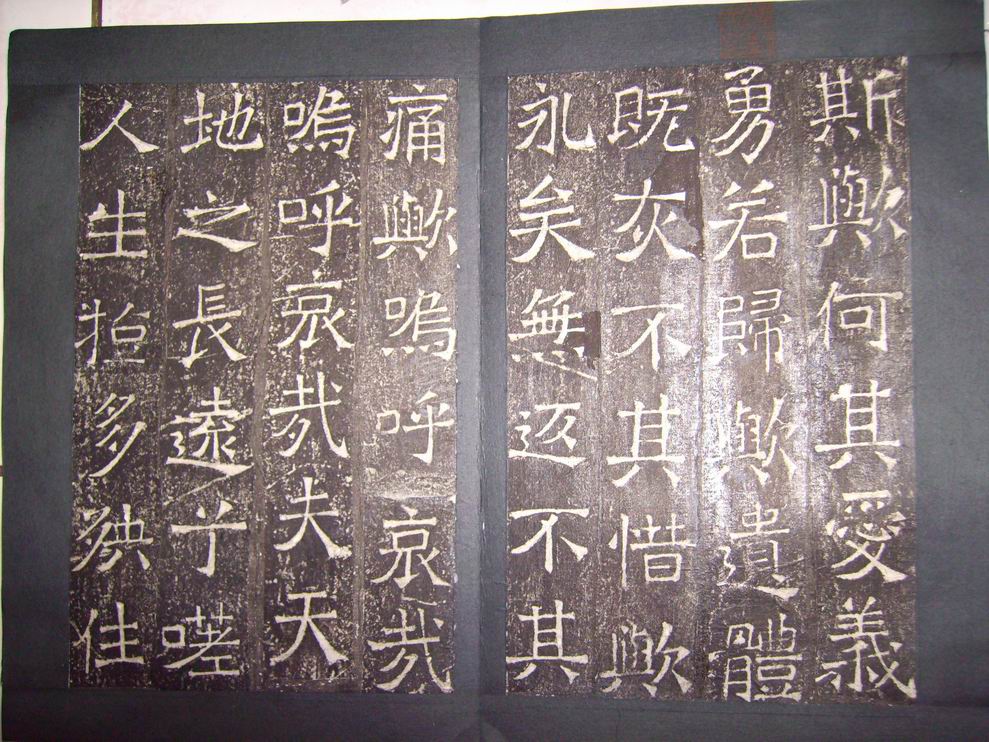 斯歟何其愛義
勇若歸歟遺體
既灰不其惜歟
永矣無返不其
痛歟嗚呼哀哉
嗚呼哀哉夫天
地之長遠乎嗟
人生多殃佳